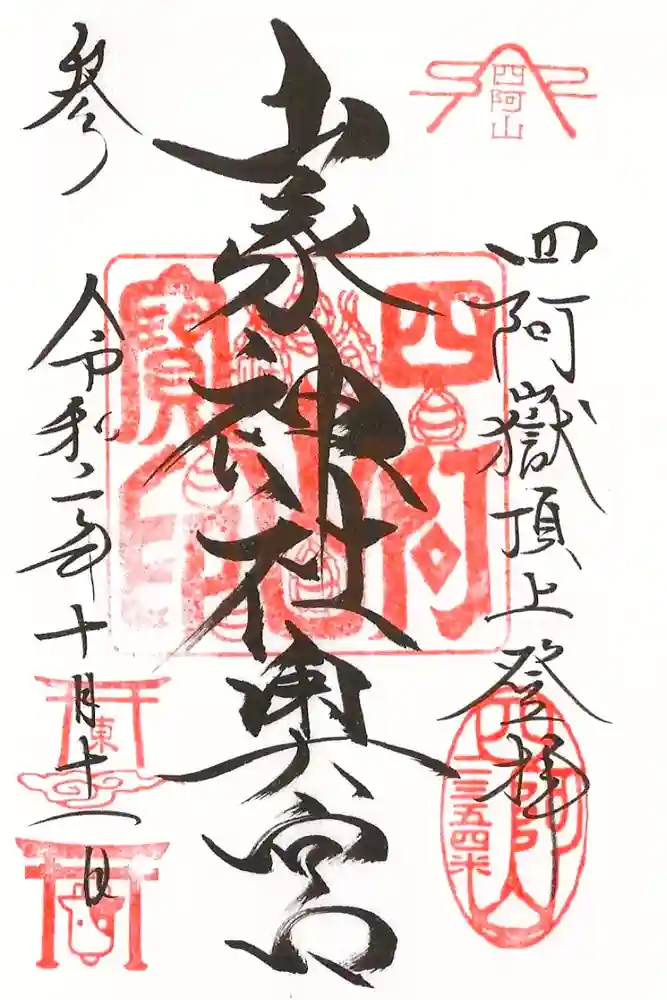 四阿山
四阿嶽頂上登拝
山家神社奥宮
参
令和二年十月十一日
四阿山
寶印
四阿山
二三五四米
東